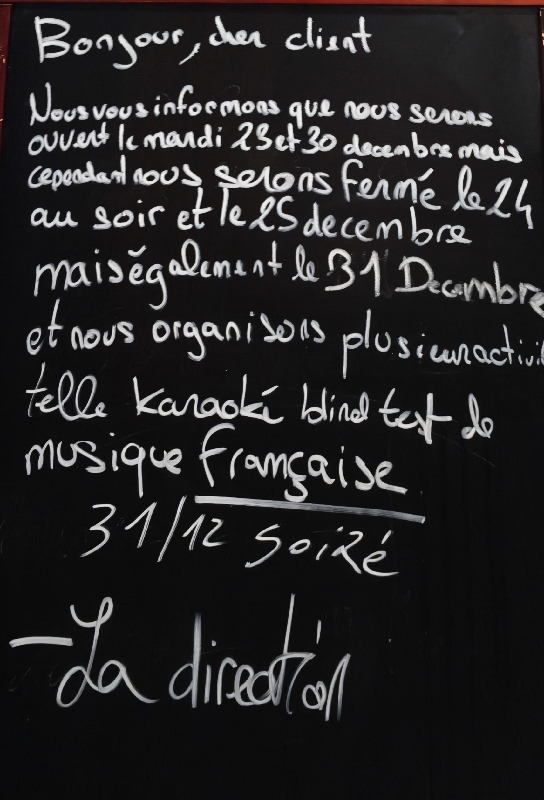 Bonjour, cher client
Nous vous informons que nous serons
ouvert le mardi 23 et 30 decembre mais
cependant nous serons fermé le 24
au soir et le 25 decembre
mais également le 31 Decembre
et nous organisons plusieur activi
telle Karaoké blind test de
musique française
31/12 soiré
- La direction